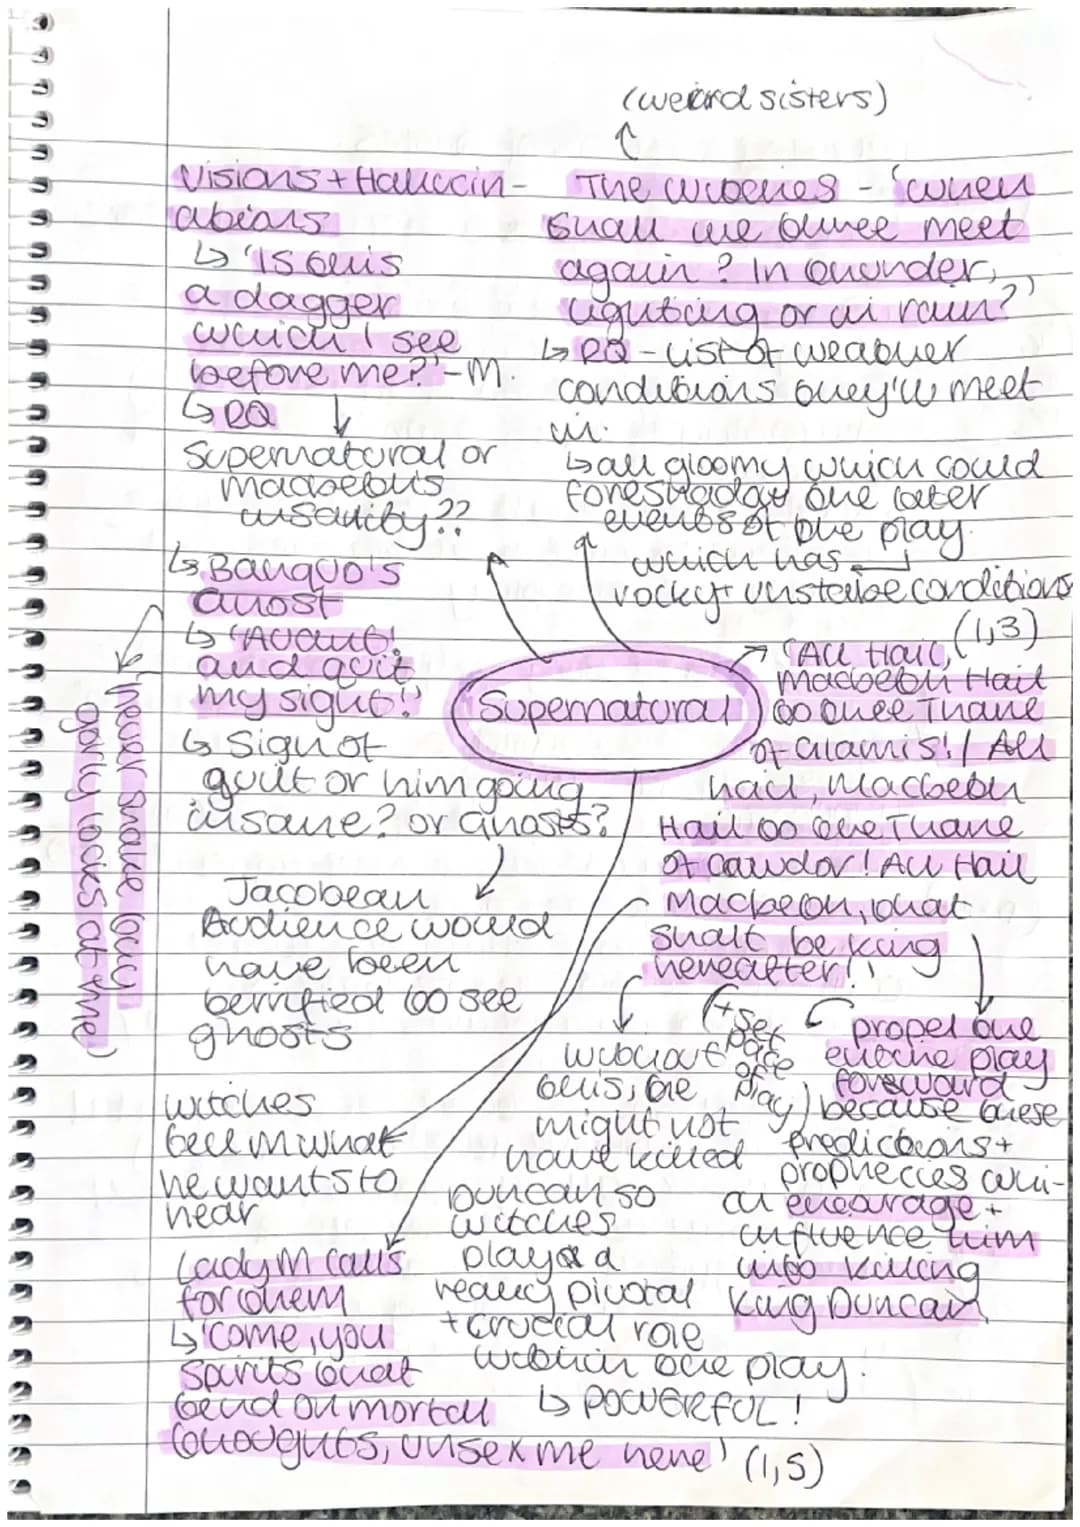 (weird sisters)
Visions + Hallucin-
ations
↳ 'Is this
a dagger
which I see
before me?' - M.
↳ RQ
Supernatural or
macbeth's
insanity??
↳ Banquo's
Ghost
↳ 'Avaunt!
and quit
my sight!'
↳ Sign of
guilt or him going
insane? or Ghosts?
Jacobean
Audience would
have been
terrified to see
ghosts
'never shake thou
gorey locks at me)
The witches - 'when
shall we three meet
again? In thunder,
lightning or in rain?'
↳ RQ - list of weather
conditions they'll meet
in.
↳ all gloomy which could
foreshadow the later
events of the play
which has
rocky + unstable conditions
Supernatural
(1,3)
'All Hail,
Macbeth Hail
to thee Thane
of Glamis! / All
hail, Macbeth
Hail to the Thane
of cawdor! All Hail
Macbeth, that
shalt be king
hereafter!'
(+ set
pace
of the
play)
propel the
entire play
forward
because these
predictions +
prophecies whi-
ch encourage +
influence him
into killing
King Duncan
without
this, he
might not
have killed
Duncan so
witches
played a
really pivotal
+ crucial role
within the play.
↳ POWERFUL!
witches
tell M what
he wants to
hear
Lady M calls
for them
↳ 'Come, you
spirits that
tend on mortal
thoughts, unsex me here' (1,5)